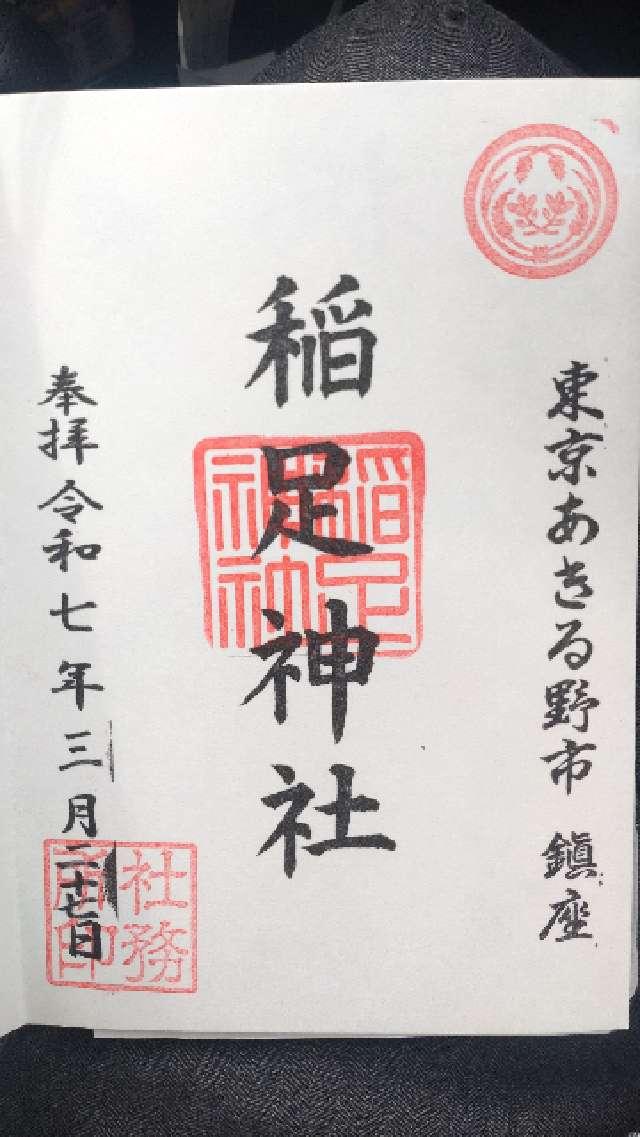 東京あきる野市 鎮座
稲足神社
稲足神社
奉拝 令和七年三月二十七日
社務所印